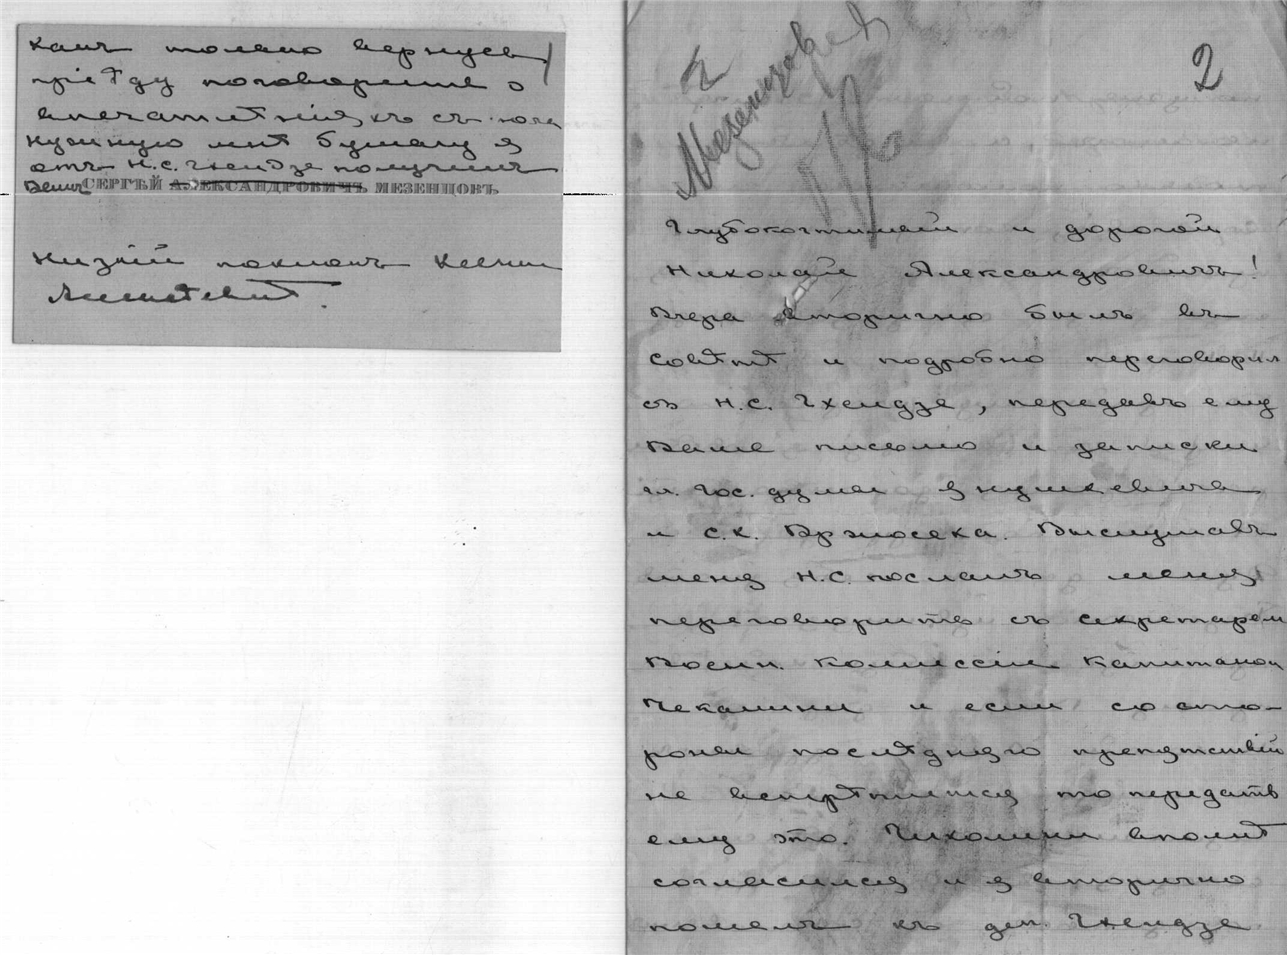 какъ только вернусь
пріѣду поговорить о
впечатлѣніяхъ съ
нужную мнѣ бумагу я
отъ Н.С. Чхеидзе получилъ
СЕРГѢЙ АЛЕКСАНДРОВИЧЪ МЕЗЕНЦОВЪ
Низкій поклонъ Ксеніи
2
Мезенцовъ
Глубокочтимый и дорогой
Николай Александровичъ!
Вчера вторично былъ въ
Совѣтѣ и подробно переговорил
съ Н.С. Чхеидзе, передавъ ему
Ваше письмо и записки
чл. Гос. думы Янушкевича
и С.К. Вржосека. Выслушавъ
меня Н.С. послалъ меня
переговорить съ секретарем
Воен. комиссіи Капитаном
Чекалини и если со сто-
роны послѣдняго препятствій
не встрѣтится то передать
ему это. Чихолини вполнѣ
согласился и я вторично
пошелъ къ деп. Чхеидзе